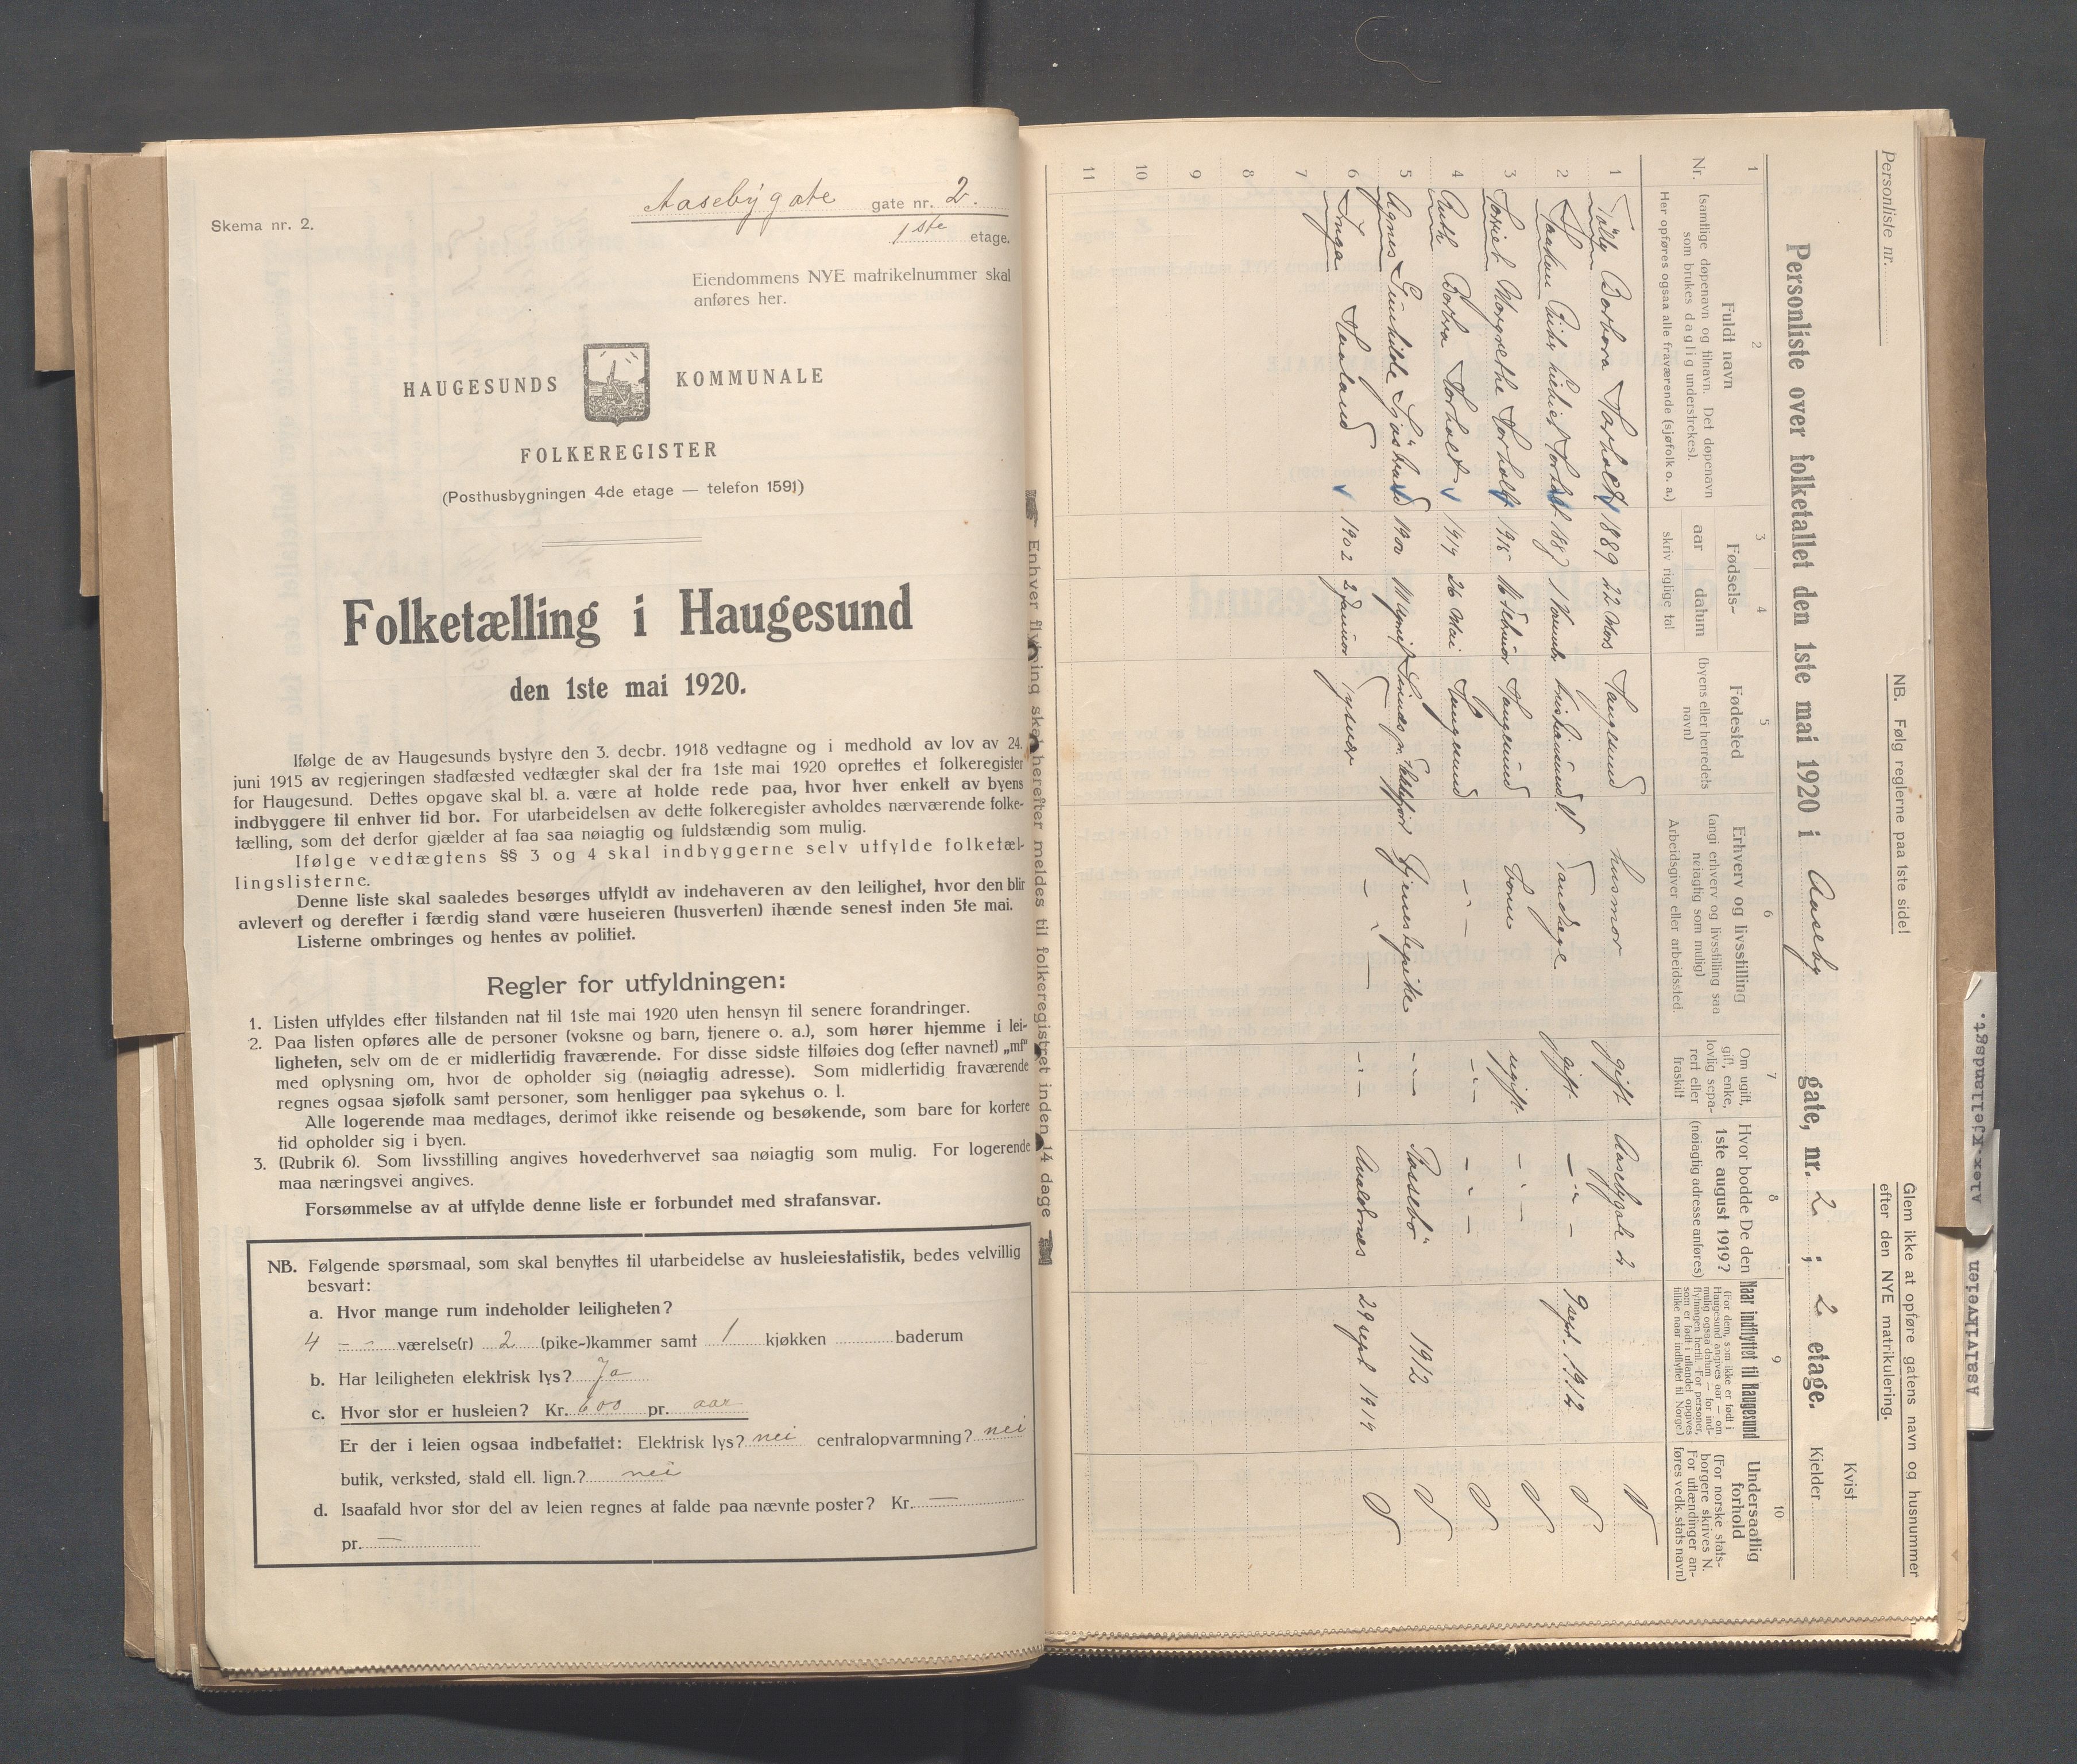 Skema nr. 2.
Aasebygate gate nr. 2.
1ste etage.
Eiendommens NYE matrikelnummer skal
anføres her.
HAUGESUNDS KOMMUNALE
FOLKEREGISTER
(Posthusbygningen 4de etage — telefon 1591)
Folketælling i Haugesund
den 1ste mai 1920.
Ifølge de av Haugesunds bystyre den 3. decbr. 1918 vedtagne og i medhold av lov av 24.
juni 1915 av regjeringen stadfæsted vedtægter skal der fra 1ste mai 1920 oprettes et folkeregister
for Haugesund. Dettes opgave skal bl. a. være at holde rede paa, hvor hver enkelt av byens
indbyggere til enhver tid bor. For utarbeidelsen av dette folkeregister avholdes nærværende folke-
tælling, som det derfor gjælder at faa saa nøiagtig og fuldstændig som mulig.
Ifølge vedtægtens §§ 3 og 4 skal indbyggerne selv utfylde folketæl-
lingslisterne.
Denne liste skal saaledes besørges utfyldt av indehaveren av den leilighet, hvor den blir
avlevert og derefter i færdig stand være huseieren (husverten) ihænde senest inden 5te mai.
Listerne ombringes og hentes av politiet.
Regler for utfyldningen:
1. Listen utfyldes efter tilstanden nat til 1ste mai 1920 uten hensyn til senere forandringer.
2. Paa listen opføres alle de personer (voksne og barn, tjenere o. a.), som hører hjemme i lei-
ligheten, selv om de er midlertidig fraværende. For disse sidste tilføies dog (efter navnet) „mf"
med oplysning om, hvor de opholder sig (nøiagtig adresse). Som midlertidig fraværende
regnes ogsaa sjøfolk samt personer, som henligger paa sykehus o. l.
Alle logerende maa medtages, derimot ikke reisende og besøkende, som bare for kortere
tid opholder sig i byen.
3. (Rubrik 6). Som livsstilling angives hovederhvervet saa nøiagtig som mulig. For logerende
maa næringsvei angives.
Forsømmelse av at utfylde denne liste er forbundet med strafansvar.
NB. Følgende spørsmaal, som skal benyttes til utarbeidelse av husleiestatistik, bedes velvillig
besvart:
a. Hvor mange rum indeholder leiligheten?
4 værelse(r) 2 (pike-)kammer samt 1 kjøkken baderum
b. Har leiligheten elektrisk lys? Ja
c. Hvor stor er husleien? Kr. 600 pr. aar
Er der i leien ogsaa indbefattet: Elektrisk lys? nei centralopvarmning? nei
butik, verksted, stald ell. lign.? nei
d. Isaafald hvor stor del av leien regnes at falde paa nævnte poster? Kr. —
pr. —
Enhver flytning skal herefter meldes til folkeregistret inden 14 dage
Personliste nr.
NB. Følg reglerne paa 1ste side!
Glem ikke at opføre gatens navn og husnummer
efter den NYE matrikulering.
Kvist
Personliste over folketallet den 1ste mai 1920 i Aaseby gate, nr. 2 ; 2 etage. Kjelder
1 2 3 4 5 6 7 8 9 10
Nr.
Fuldt navn
(samtlige døpenavn og tilnavn. Det døpenavn
som brukes daglig understrekes).
Her opføres ogsaa alle fraværende (sjøfolk o. a.)
Fødsels-
aar datum
skriv rigtige tal
Fødested
(byens eller herredets
navn)
Erhverv og livsstilling
(angi erhverv og livsstilling saa
nøiagtig som mulig)
Arbeidsgiver eller arbeidssted.
Om ugift,
gift, enke,
lovlig sepa-
rert eller
fraskilt
Hvor bodde De den
1ste august 1919?
(nøiagtig adresse anføres)
Naar indflyttet til Haugesund
(For dem, som ikke er født i
Haugesund angives aar — om
mulig ogsaa datum — for ind-
flytningen hertil. For personer,
som er født i utlandet opgives
tillike naar indflyttet til Norge)
Undersaatlig
forhold
(For norske stats-
borgere skrives N.
For utlændinger an-
føres vedk. stats navn)
1 Barbara 1889 22 Mars Haugesund husmor gift Aasebygate 2 N
2 Haakon 1 Novembr Kristiansund N. Tandlæge gift — " — 9 sept. 1912 N
3 Margrethe 16 Februar Haugesund barn ugift — " — N
4 Ruth 1919 26 Mai Haugesund — " — — " — — " — N
5 Agnes Gunhilde 1900 Tjenestepike — " — Rossebø 1912 N
6 Inga 1902 2 Januar Tysvær — " — — " — Avaldsnes 29 sept 1919 N
7
8
9
10
11
Alex. Kjellandsgt.
Asalvikveien